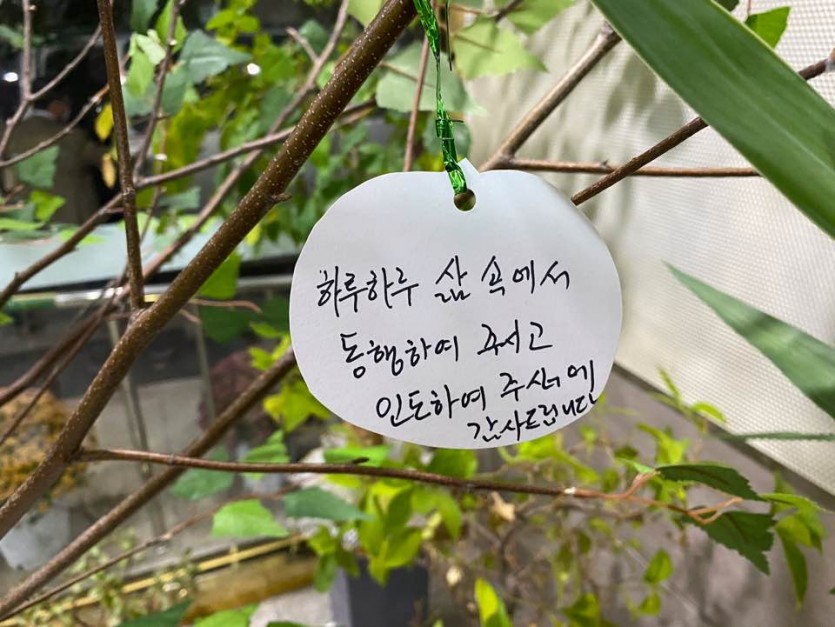 하루하루 삶 속에서
동행하여 주시고
인도하여 주셔에
감사드립니다